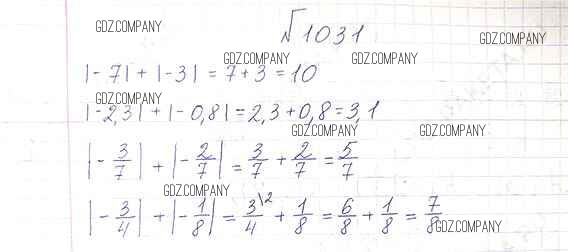 GDZ.COMPANY
√1031
GDZ.COMPANY
GDZ.COMPANY
GDZ.COMPANY
|-7| + |-3| = 7 + 3 = 10
GDZ.COMPANY
|-2,3| + |-0,8| = 2,3 + 0,8 = 3,1
GDZ.COMPANY
GDZ.COMPANY
|-3/7| + |-2/7| = 3/7 + 2/7 = 5/7
GDZ.COMPANY
|-3/4| + |-1/8| = 3\2/4 + 1/8 = 6/8 + 1/8 = 7/8
GDZ.COMPANY